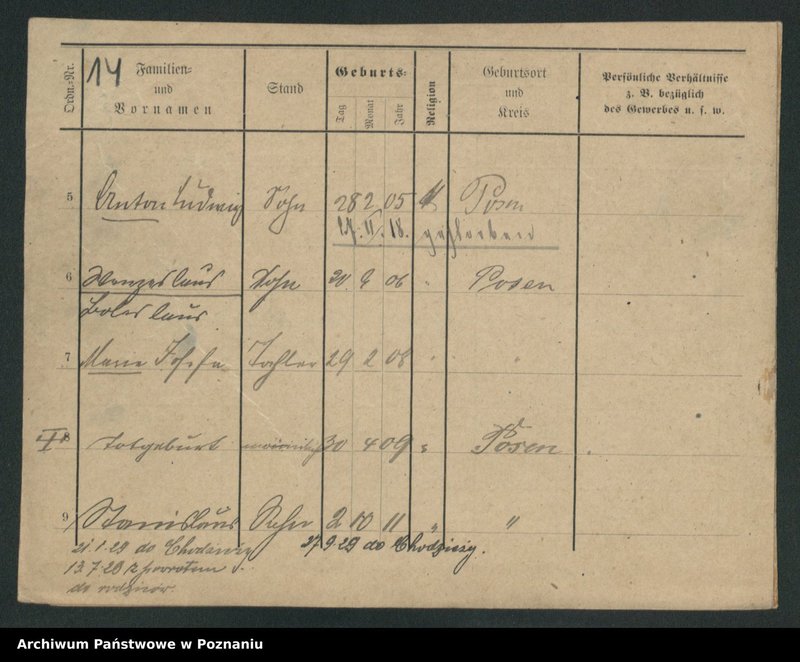 14
Ordn.-Nr.
Familien-
und
Vornamen
Stand
Geburts-
Tag
Monat
Jahr
Religion
Geburtsort
und
Kreis
Persönliche Verhältnisse
z. B. bezüglich
des Gewerbes u. s. w.
5 Anton Ludwig Sohn 28 2 05 Posen
II. 18. gestorben
6 Wenzeslaus Sohn 9 06 " Posen
Boleslaus
7 Marie Josefa Tochter 29 2 08 " "
8 Totgeburt männlich 30 4 09 " Posen
9 Stanislaus Sohn 2 10 11 " "
21.1.29 do Chodzieży 27.9.29 do Chodzieży.
13.7.29 z powrotem
do rodziców.
Archiwum Państwowe w Poznaniu